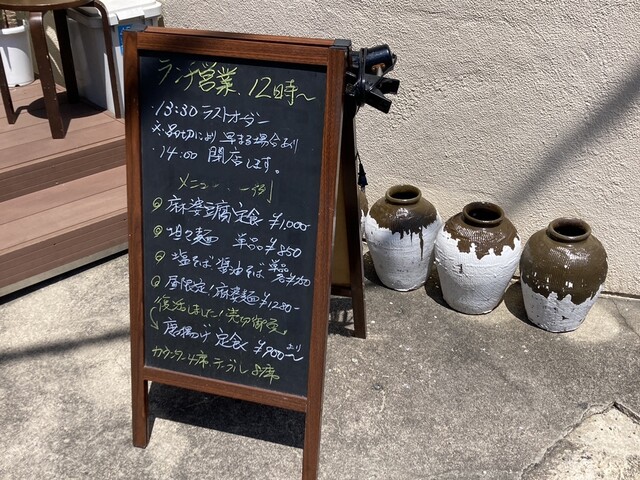 ランチ営業、12時〜
・13:30 ラストオーダー
※品切により早まる場合あり
・14:00 閉店します。
メニュー、一例
麻婆豆腐定食 ¥1,000
坦々麺 単品¥850
塩そば 醤油そば 単品 各¥750
昼限定 麻婆麺 ¥1230-
復活しました！売切御免。
唐揚げ定食 ¥900〜より
カウンター4席、テーブル 8席